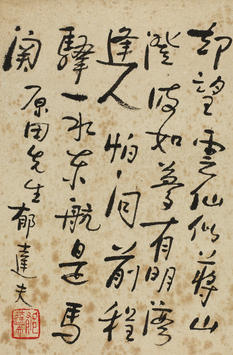 却望雲仙似蔣山
澄波如夢有明灣
逢人怕問前程
驛一水東航是馬
関 原田先生 郁達夫